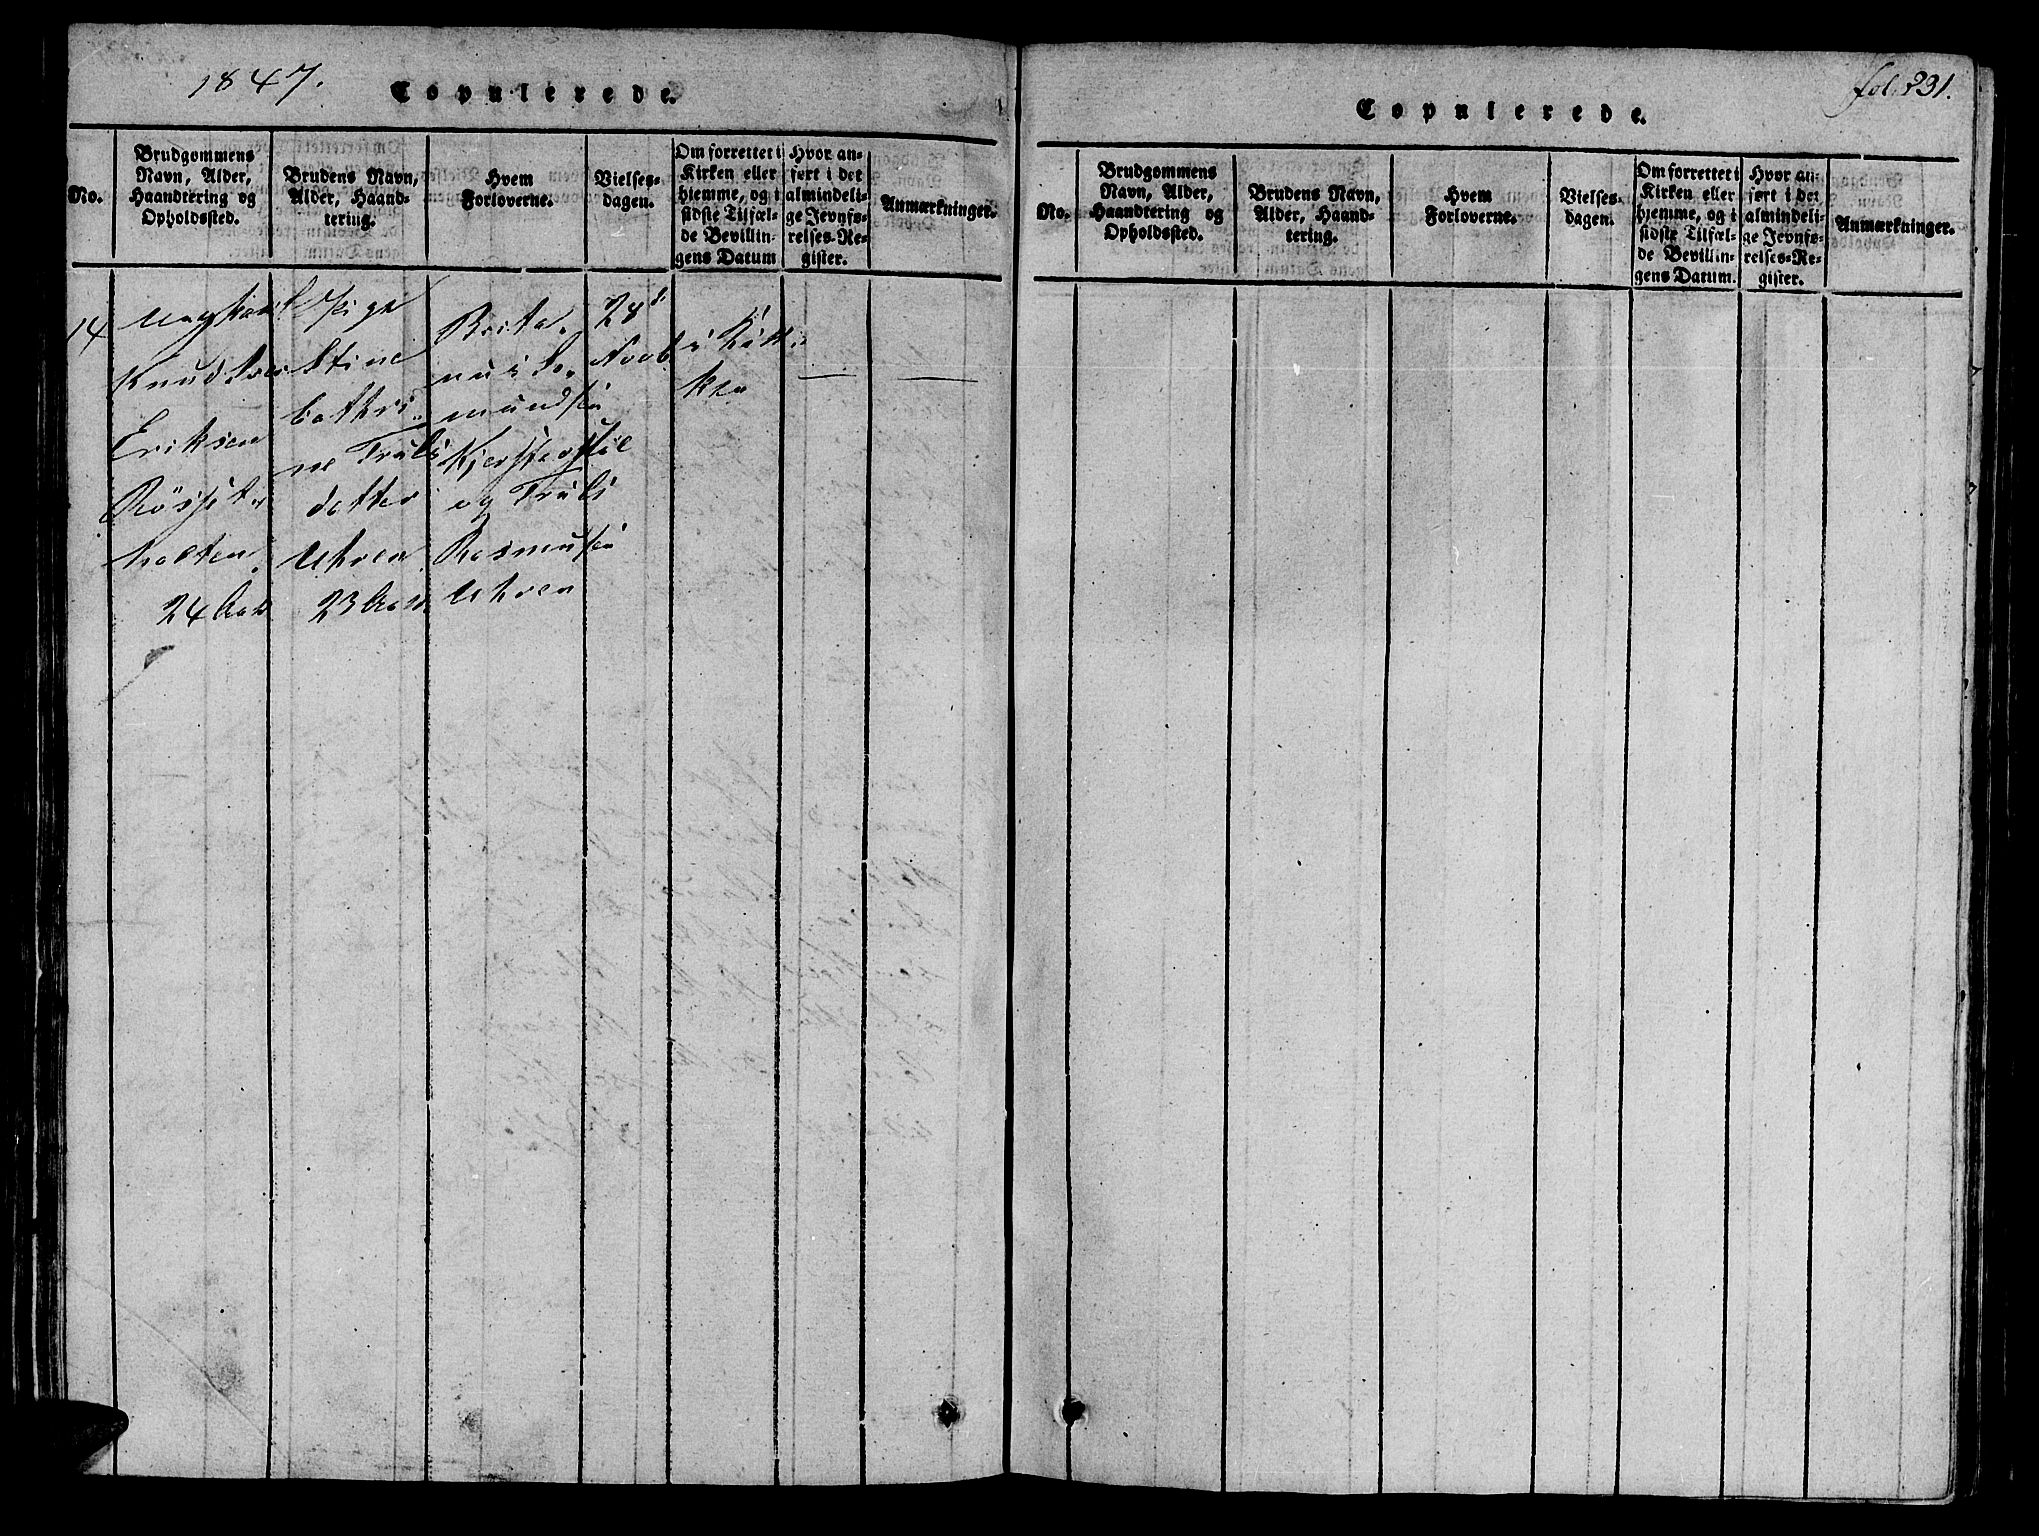 1847.
Copulerede.
No.
Brudgommens
Navn, Alder,
Haandtering og
Opholdssted.
Brudens Navn,
Alder, Haand-
tering.
Hvem
Forloverne.
Vielses-
dagen.
Om forrettet i
Kirken eller
hjemme, og i
sidste Tilfæl-
de Bevillin-
gens Datum
Hvor an-
ført i det
almindeli-
ge Jevnfø-
relses-Re-
gister.
Anmærkninger.
14
Ungkarl
Knud
Eriksen
holten.
24 Aar
Pige
Stine
Cathri
ne Truls
datter
Uhren
23 Aar
mundsen
og Truls
Rasmusen
Uhren
28
Novb
i Kir
ken
fol. 231.
Copulerede.
No.
Brudgommens
Navn, Alder,
Haandtering og
Opholdssted.
Brudens Navn,
Alder, Haand-
tering.
Hvem
Forloverne.
Vielses-
dagen.
Om forrettet i
Kirken eller
hjemme, og i
sidste Tilfæl-
de Bevillin-
gens Datum.
Hvor an-
ført i det
almindeli-
ge Jevnfø-
relses-Re-
gister.
Anmærkninger.